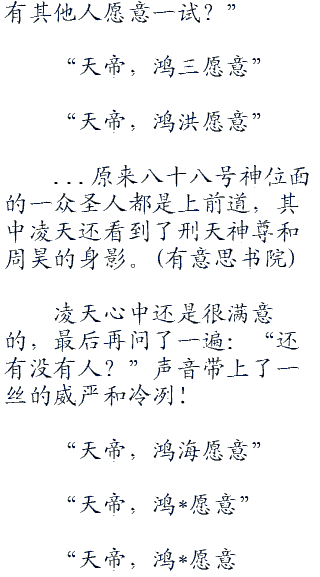 有其他人愿意一试？”
“天帝，鸿三愿意”
“天帝，鸿洪愿意”
...原来八十八号神位面
的一众圣人都是上前道，其
中凌天还看到了刑天神尊和
周昊的身影。(有意思书院)
凌天心中还是很满意
的，最后再问了一遍：“还
有没有人？”声音带上了一
丝的威严和冷冽！
“天帝，鸿海愿意”
“天帝，鸿*愿意”
“天帝，鸿*愿意